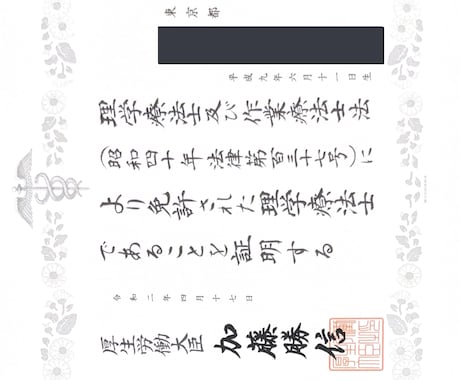 東京都
平成九年六月十一日生
理学療法士及び作業療法士法
（昭和四十年法律第百三十七号）に
より免許された理学療法士
であることを証明する
令和二年四月十七日
厚生労働大臣 加藤勝信